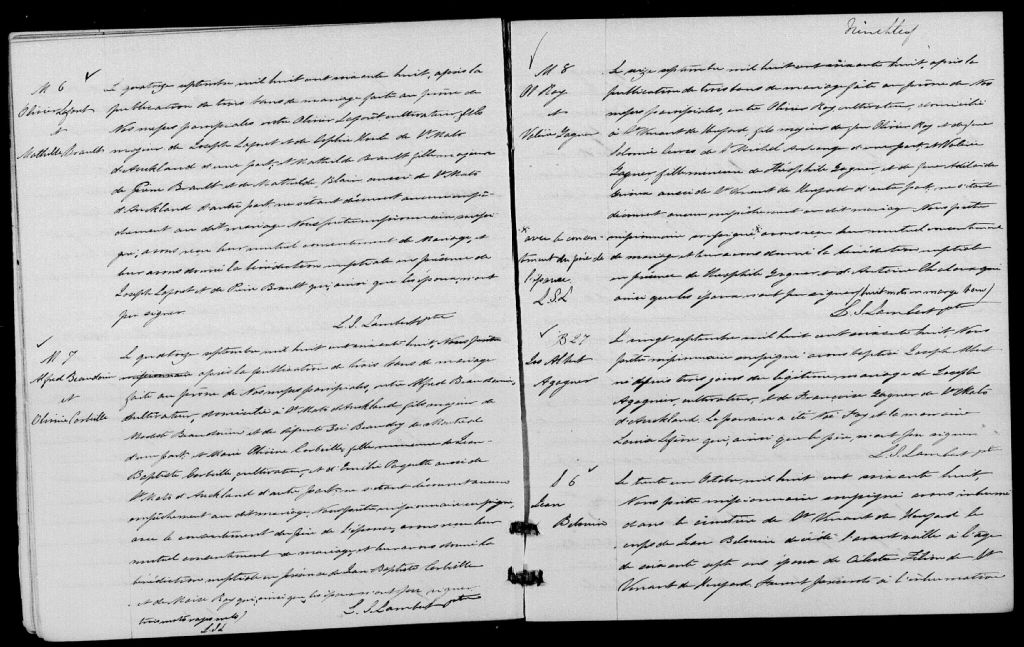 M 6
Olivier Lafont
et
Mathilde Brault
Le quatorze septembre mil huit cent soixante huit, après la
publication de trois bans de mariage faite au prône de
Nos messes paroissiales entre Olivier Lafont cultivateur, fils
majeur de Joseph Lafont et de Sophie de St Malo
d'Auckland d'une part, et Mathilde Brault fille majeure
de Pierre Brault et de Mathilde Blain aussi de St Malo
d'Auckland d'autre part, ne s'étant découvert aucun empê-
chement au dit mariage Nous prêtre missionnaire soussi-
gné, avons reçu leur mutuel consentement de Mariage, et
leur avons donné la bénédiction nuptiale en présence de
Joseph Lafont et de Pierre Brault qui, ainsi que les époux, n'ont
pu signer
L. S. Lambert ptre
M 7
Alfred Beaudoin
et
Olivine Corbeille
Le quatorze septembre mil huit cent soixante huit, Nous prêtre
missionnaire après la publication de trois bans de mariage
faite au prône de Nos messes paroissiales, entre Alfred Beaudoin,
cultivateur, domicilié à St Malo d'Auckland fils majeur de
Modeste Beaudoin et de défunte Beaudry de Montréal
d'une part, et Marie Olivine Corbeille, fille mineure de Jean
Baptiste Corbeille, cultivateur, et d'Emilie Paquette aussi de
St Malo d'Auckland d'autre part, ne s'étant découvert aucun
empêchement au dit mariage, Nous prêtre missionnaire soussigné,
avec le consentement du père de l'épouse, avons reçu leur
mutuel consentement de mariage, et leur avons donné la
bénédiction nuptiale en présence de Jean Baptiste Corbeille
et de Moïse Roy qui, ainsi que les époux n'ont pu signer
trois mots rayés nuls)
L. S. Lambert ptre
LSL
M 8
Ol Roy
et
Valérie Gagner
Le seize septembre mil huit cent soixante huit, après la
publication de trois bans de mariage faite au prône de Nos
messes paroissiales, entre Olivier Roy cultivateur, domicilié
à St Venant de Hereford fils majeur de feu Olivier Roy et de feue
Salomée de St Michel d'une part, et Valérie
Gagner fille mineure de Théophile Gagner, et de feue Adélaïde
aussi de St Venant de Hereford d'autre part, ne s'étant
découvert aucun empêchement au dit mariage Nous prêtre
missionnaire soussigné,* avons reçu leur mutuel consentement
de mariage et leur avons donné la bénédiction nuptiale
en présence de Théophile Gagner et d'Antoine qui
ainsi que les époux n'ont pu signer (huit mots en marge Bons)
* avec le consen-
tement du père de
l'épouse
L.S.L
L. S. Lambert ptre
B 27
Jos Albert
Agagner
Le vingt septembre mil huit cent soixante huit, Nous
prêtre missionnaire soussigné avons baptisé Joseph Albert
né depuis trois jours du légitime mariage de Joseph
Agagner, cultivateur, et de Françoise Gagner de St Malo
d'Auckland. Le parrain a été Roy et la marraine
qui, ainsi que le père, n'ont pu signer
L. S. Lambert ptre
S 6
Jean
Blouin
Le trente un Octobre mil huit cent soixante huit,
Nous prêtre missionnaire soussigné avons inhumé
dans le cimetière de St Venant de Hereford le
corps de Jean Blouin décédé l'avant veille à l'âge
de soixante sept ans époux de Céleste de St
Venant de Hereford Furent présents à l'inhumation